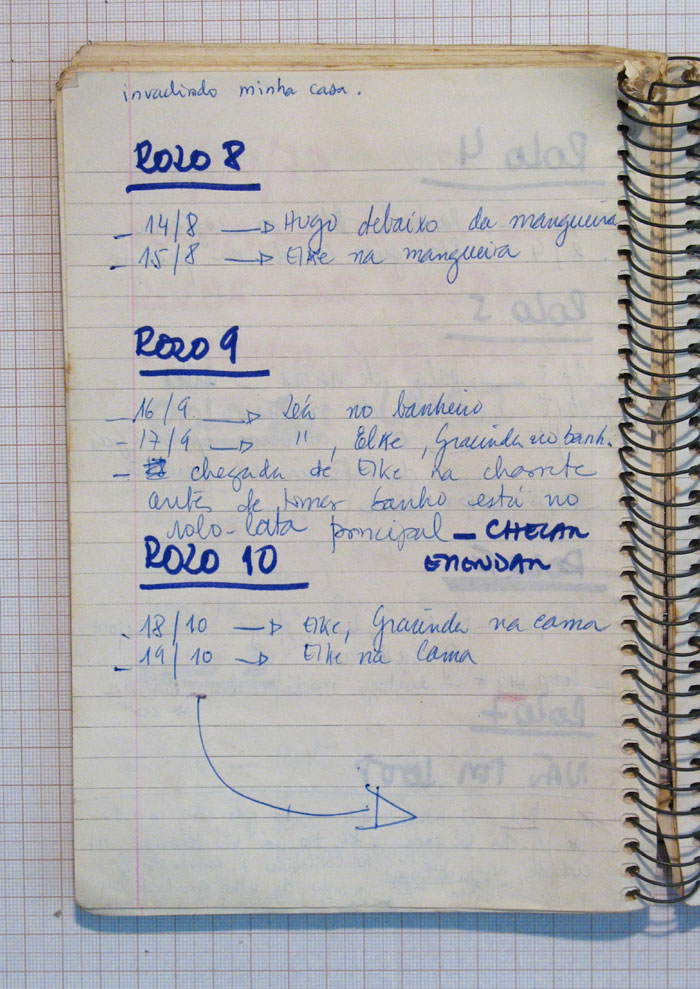 invadindo minha casa.
ROLO 8
- 14/8 → Hugo debaixo da mangueira
- 15/8 → Elke na mangueira
ROLO 9
- 16/9 → Leá no banheiro
- 17/9 → " , Elke, Gracinda no banh.
- chegada de Elke na charrete
antes de tomar banho está no
rolo-lata principal — CHECAR
ROLO 10 EMENDAR
- 18/10 → Elke, Gracinda na cama
- 19/10 → Elke na cama